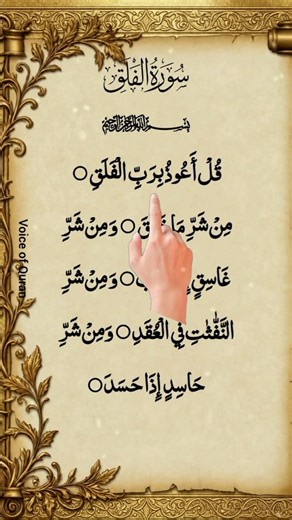 سُورَةُ الْفَلَقِ
بِسْمِ اللهِ الرَّحْمٰنِ الرَّحِيْمِ
قُلْ أَعُوْذُ بِرَبِّ الْفَلَقِ ○
مِنْ شَرِّ مَا ○ وَمِنْ شَرِّ
غَاسِقٍ ○ وَمِنْ شَرِّ
النَّفّٰثٰتِ فِي الْعُقَدِ ○ وَمِنْ شَرِّ
حَاسِدٍ إِذَا حَسَدَ ○
Voice of Quran